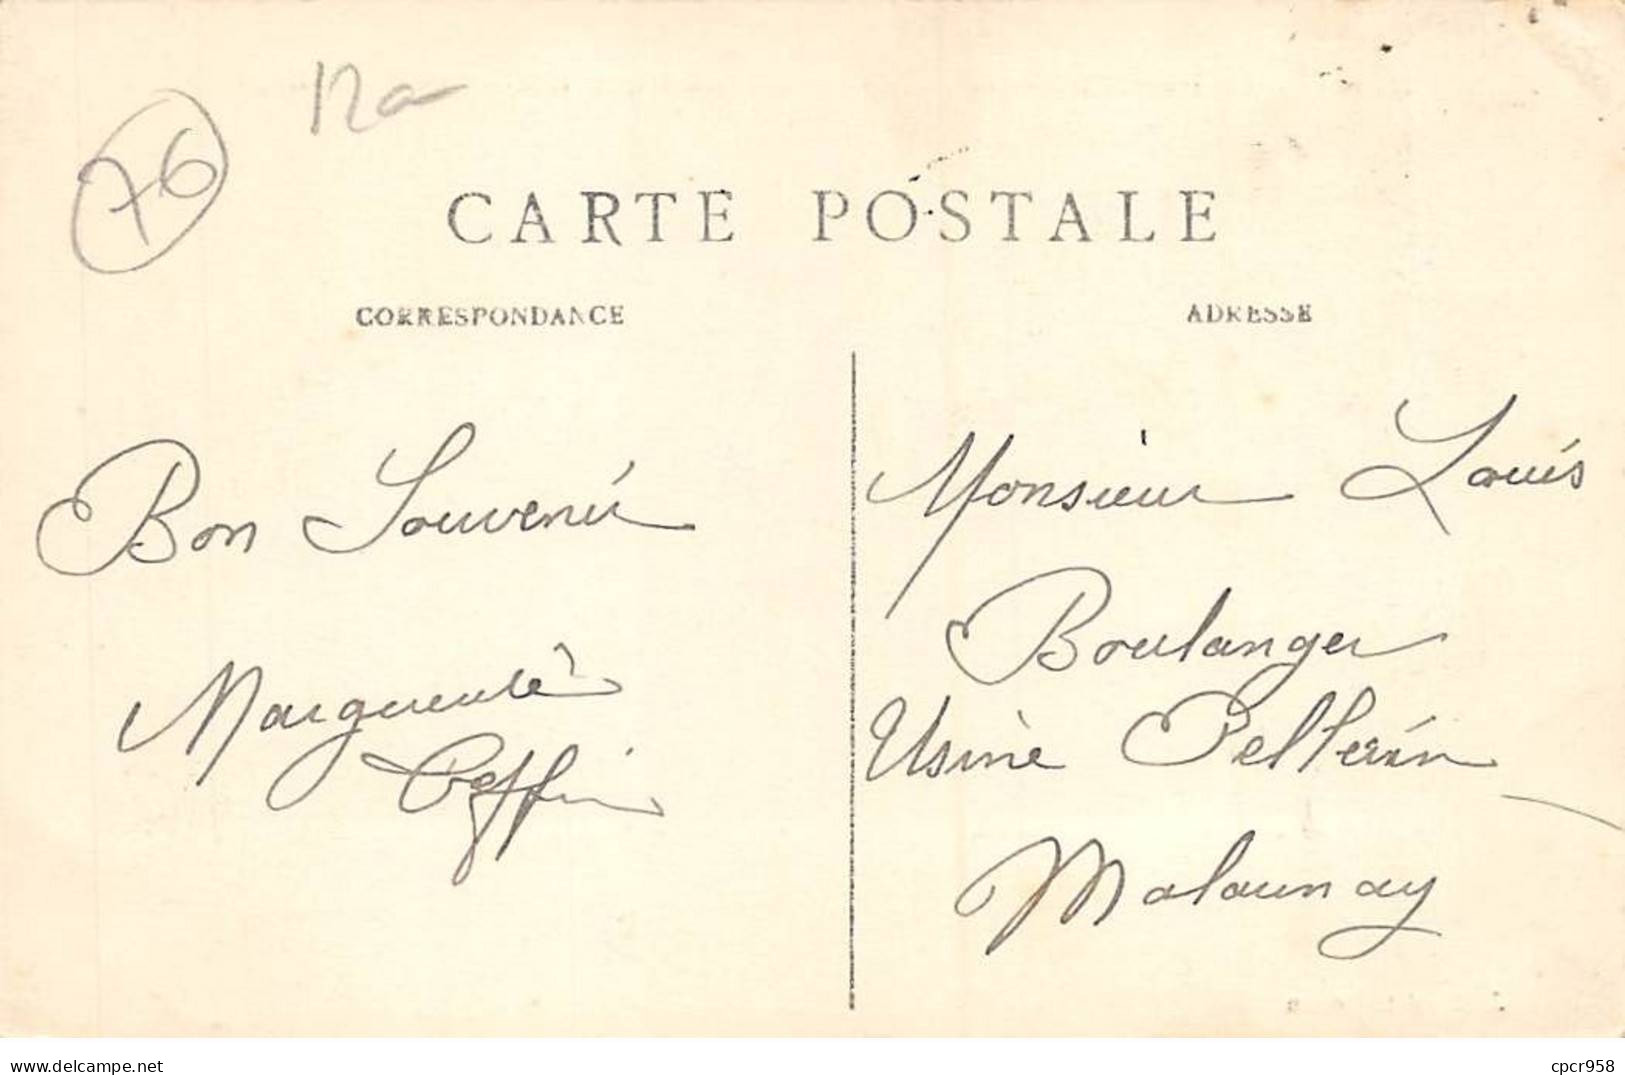 76
CARTE POSTALE
CORRESPONDANCE
ADRESSE
Bon Souvenir
Marguerite
Monsieur Louis
Boulanger
Usine Pellerin
Malaunay
delcampe.net
cpcr958